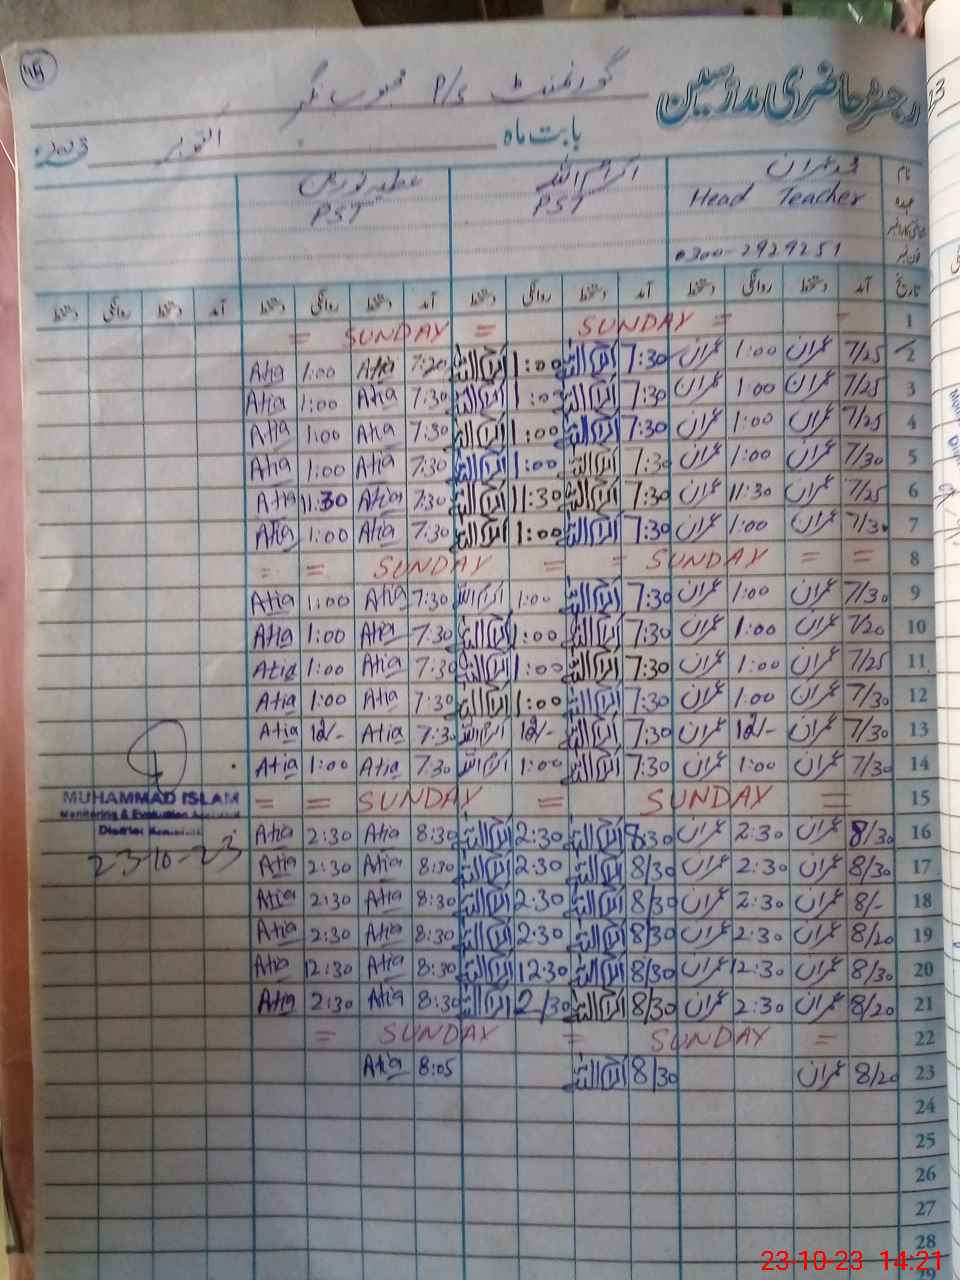 رجسٹر حاضری مدرسین
گورنمنٹ P/s محبوب نگر
بابت ماہ اکتوبر 2023
نام عمران اکرام اللہ
عہدہ Head Teacher PST PST
فون نمبر 0300-2929251
تاریخ آمد دستخط روانگی دستخط آمد دستخط روانگی دستخط آمد دستخط روانگی دستخط آمد دستخط روانگی دستخط
1 SUNDAY = SUNDAY =
2 7/25 عمران 1:00 عمران 7:30 اکرام اللہ 1:00 اکرام اللہ 7:20 Atia 1:00 Atia
3 7/25 عمران 1:00 عمران 7:30 اکرام اللہ 1:00 اکرام اللہ 7:30 Atia 1:00 Atia
4 7/25 عمران 1:00 عمران 7:30 اکرام اللہ 1:00 اکرام اللہ 7:30 Atia 1:00 Atia
5 7/30 عمران 1:00 عمران 7:30 اکرام اللہ 1:00 اکرام اللہ 7:30 Atia 1:00 Atia
6 7/25 عمران 11:30 عمران 7:30 اکرام اللہ 11:30 اکرام اللہ 7:30 Atia 11:30 Atia
7 7/30 عمران 1:00 عمران 7:30 اکرام اللہ 1:00 اکرام اللہ 7:30 Atia 1:00 Atia
8 = = SUNDAY = = SUNDAY = =
9 7/30 عمران 1:00 عمران 7:30 اکرام اللہ 1:00 اکرام اللہ 7:30 Atia 1:00 Atia
10 7/20 عمران 1:00 عمران 7:30 اکرام اللہ 1:00 اکرام اللہ 7:30 Atia 1:00 Atia
11 7/25 عمران 1:00 عمران 7:30 اکرام اللہ 1:00 اکرام اللہ 7:30 Atia 1:00 Atia
12 7/30 عمران 1:00 عمران 7:30 اکرام اللہ 1:00 اکرام اللہ 7:30 Atia 1:00 Atia
13 7/30 عمران 12/- عمران 7:30 اکرام اللہ 12/- اکرام اللہ 7:30 Atia 12/- Atia
14 7/30 عمران 1:00 عمران 7:30 اکرام اللہ 1:00 اکرام اللہ 7:30 Atia 1:00 Atia
15 = SUNDAY = SUNDAY = =
MUHAMMAD ISLAM
Monitoring & Evaluation
District
23-10-23
16 8/30 عمران 2:30 عمران 8:30 اکرام اللہ 2:30 اکرام اللہ 8:30 Atia 2:30 Atia
17 8/30 عمران 2:30 عمران 8/30 اکرام اللہ 2:30 اکرام اللہ 8:30 Atia 2:30 Atia
18 8/- عمران 2:30 عمران 8/30 اکرام اللہ 2:30 اکرام اللہ 8:30 Atia 2:30 Atia
19 8/20 عمران 2:30 عمران 8/30 اکرام اللہ 2:30 اکرام اللہ 8:30 Atia 2:30 Atia
20 8/30 عمران 12:30 عمران 8/30 اکرام اللہ 12:30 اکرام اللہ 8:30 Atia 12:30 Atia
21 8/20 عمران 2:30 عمران 8/30 اکرام اللہ 2/30 اکرام اللہ 8:30 Atia 2:30 Atia
22 = SUNDAY = SUNDAY =
23 8/20 عمران 8/30 اکرام اللہ 8:05 Atia
24
25
26
27
28
29
23-10-23 14:21